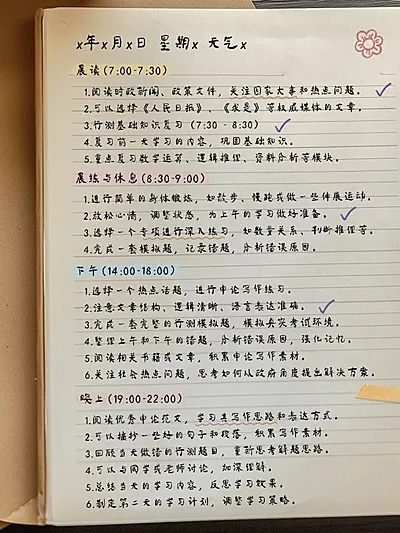 x年x月x日 星期x 天气x
晨读(7:00-7:30)
1.阅读时政新闻、政策文件,关注国家大事和热点问题。
2.可以选择《人民日报》、《求是》等权威媒体的文章。
3.行测基础知识复习(7:30 - 8:30)
4.复习前一天学习的内容,巩固基础知识。
5.重点复习数学运算、逻辑推理、资料分析等模块。
晨练与休息(8:30-9:00)
1.进行简单的身体锻炼,如散步、慢跑或做一些伸展运动。
2.放松心情,调整状态,为上午的学习做好准备。
3.选择一个专项进行深入练习,如数量关系、判断推理等。
4.完成一套模拟题,记录错题,分析错误原因。
下午(14:00-18:00)
1.选择一个热点话题,进行申论写作练习。
2.注意文章结构、逻辑清晰、语言表达准确。
3.完成一套完整的行测模拟题,模拟真实考试环境。
4.整理上午和下午的错题,分析错误原因,强化记忆。
5.阅读相关书籍或文章,积累申论写作素材。
6.关注社会热点问题,思考如何从政府角度提出解决方案。
晚上(19:00-22:00)
1.阅读优秀申论范文,学习其写作思路和表达方式。
2.可以摘抄一些好的句子和段落,积累写作素材。
3.回顾当天做错的行测题目,重新思考解题思路。
4.可以与同学或老师讨论,加深理解。
5.总结当天的学习内容,反思学习效果。
6.制定第二天的学习计划,调整学习策略。